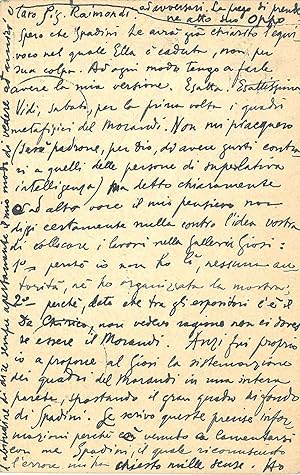 avversari. La prego di prender
ne atto suo Oppo
Caro Sig. Raimondi,
spero che Spadini Le avrà già chiarito l'equi
voco nel quale Ella è caduta, non per
sua colpa. Ad ogni modo tengo a farle
avere la mia versione. Esatta. Esattissima.
Vidi, sabato, per la prima volta i quadri
metafisici del Morandi. Non mi piacquero
(sarò padrone, per Dio, di avere gusti contra
ri a quelli delle persone di superlativa
intelligenza) Ma detto chiaramente
ad alta voce il mio pensiero non
dissi certamente nulla contro l'idea vostra
di collocare i lavori nella Galleria Giosi:
1º – perché io non ho là, nessuna au
torità, né ho organizzata la mostra;
2º – perché, dato che tra gli espositori c'è il
De Chirico, non vedevo ragione non ci doves
se essere il Morandi. Anzi fui proprio
io a proporre al Giosi la sistemazione
dei quadri del Morandi in una intera
parete, spostando il gran quadro di fondo
di Spadini. Le scrivo queste precise infor
mazioni perché è venuto a lamentarsi
con me Spadini, il quale riconosciuto
l'errore mi ha chiesto mille scuse. Ho
l'abitudine di dire sempre apertamente il mio modo di vedere ad amici